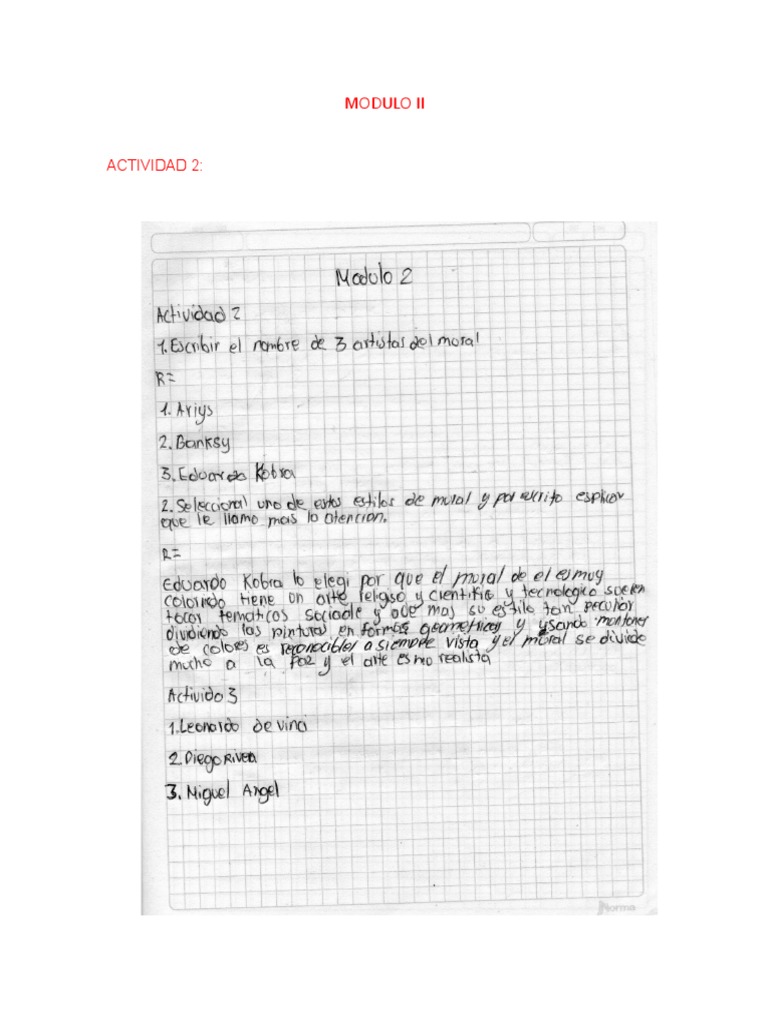 MODULO II
ACTIVIDAD 2:
Modulo 2
Actividad 2
1. Escribir el nombre de 3 artistas del moral
R=
1. Ariys
2. Banksy
3. Eduardo Kobra
2. Seleccional uno de estos estilos de mural y por escrito esplicar
que le llamo mas la atencion.
R=
Eduardo Kobra lo elegi por que el moral de el es muy
colorido tiene un arte religso y cientifico y tecnologico suelen
tocar tematicos sociale y ade mas su estilo tan peculiar
dividiendo las pinturas en formas geometricas y usando
de colores es reconocibles a siempre vista y el moral se divide
mucho a la paz y el arte es mo realista
Activido 3
1. Leonardo de vinci
2. Diego Rivera
3. Miguel Angel
Norma